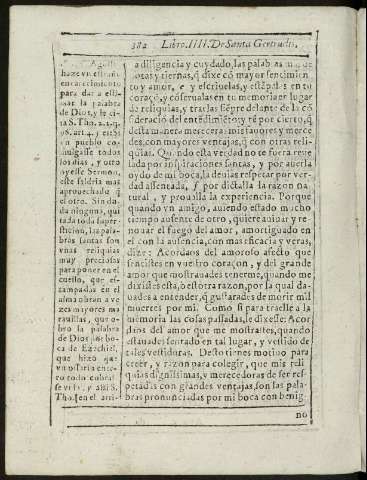 382 Libro. IIII. De Santa Gertrudis,
haze vn estraño
encarecimiento
para dar a esti-
mar la palabra
de Dios, y le ci-
ta S. Tho. 2. 2. q.
96. art. 4. y
vn pueblo co-
mulgasse todos
los dias, y otro
oyesse Sermon,
este saldria mas
aprouechado q̃
el otro. Sin du-
da ninguno, qui
tada toda supers-
ticion, las pala-
bras santas son
vnas reliquias
muy preciosas
para poner en el
cuello, que es-
tampadas en el
alma obran a ve-
zes mayores ma
rauillas, que o-
bro la palabra
de Dios en bo-
ca de Ezechiel,
que hizo a
vn ossario ente-
ro todo cobras-
se vida, y assi S.
Tho. en el arti-
a diligencia y cuydado, las palabras
otas y tiernas, q̃ dixe cõ mayor sentimien
to y amor, e y escriuelas, y estãpalas en tu
coraçõ, y cõserualas en tu memoria en lugar
de reliquias, y traelas siẽpre delante de la cõ
sideracion del entẽdimiẽto y tẽ por cierto, q̃
desta manera mereceras mis fauores y merce
des, con mayores ventajas, q̃ con otras reli-
quias. Quando esta verdad no te fuera reue
lada por inspiraciones santas, y por auerla
oydo de mi boca, la deuias respetar por ver-
dad assentada, por dictalla la razon natu
ral, y proualla la experiencia. Porque
quando vn amigo, auiendo estado mucho
tiempo ausente de otro, quiere auiuar y re-
nouar el fuego del amor, amortiguado en
el con la ausencia, con mas eficacia y veras,
dize: Acordaos del amoroso afecto que
sentistes en vuestro coraçon, y del grande
amor que mostrauades tenerme, quando me
dixistes esta, o estotra razon, por la qual da-
uades a entender, q̃ gustarades de morir mil
muertes por mi. Como si para traelle a la
memoria las cosas passadas, le dixesse: Acor
daos del amor que me mostrastes, quando
estauades sentado en tal lugar, y vestido de
tales vestiduras. Desto tienes motiuo para
creer, y razon para colegir, que mis reli
quias dignissimas, y merecedoras de ser res-
petadas con grandes ventajas, son las pala-
bras pronunciadas por mi boca con benig-
no